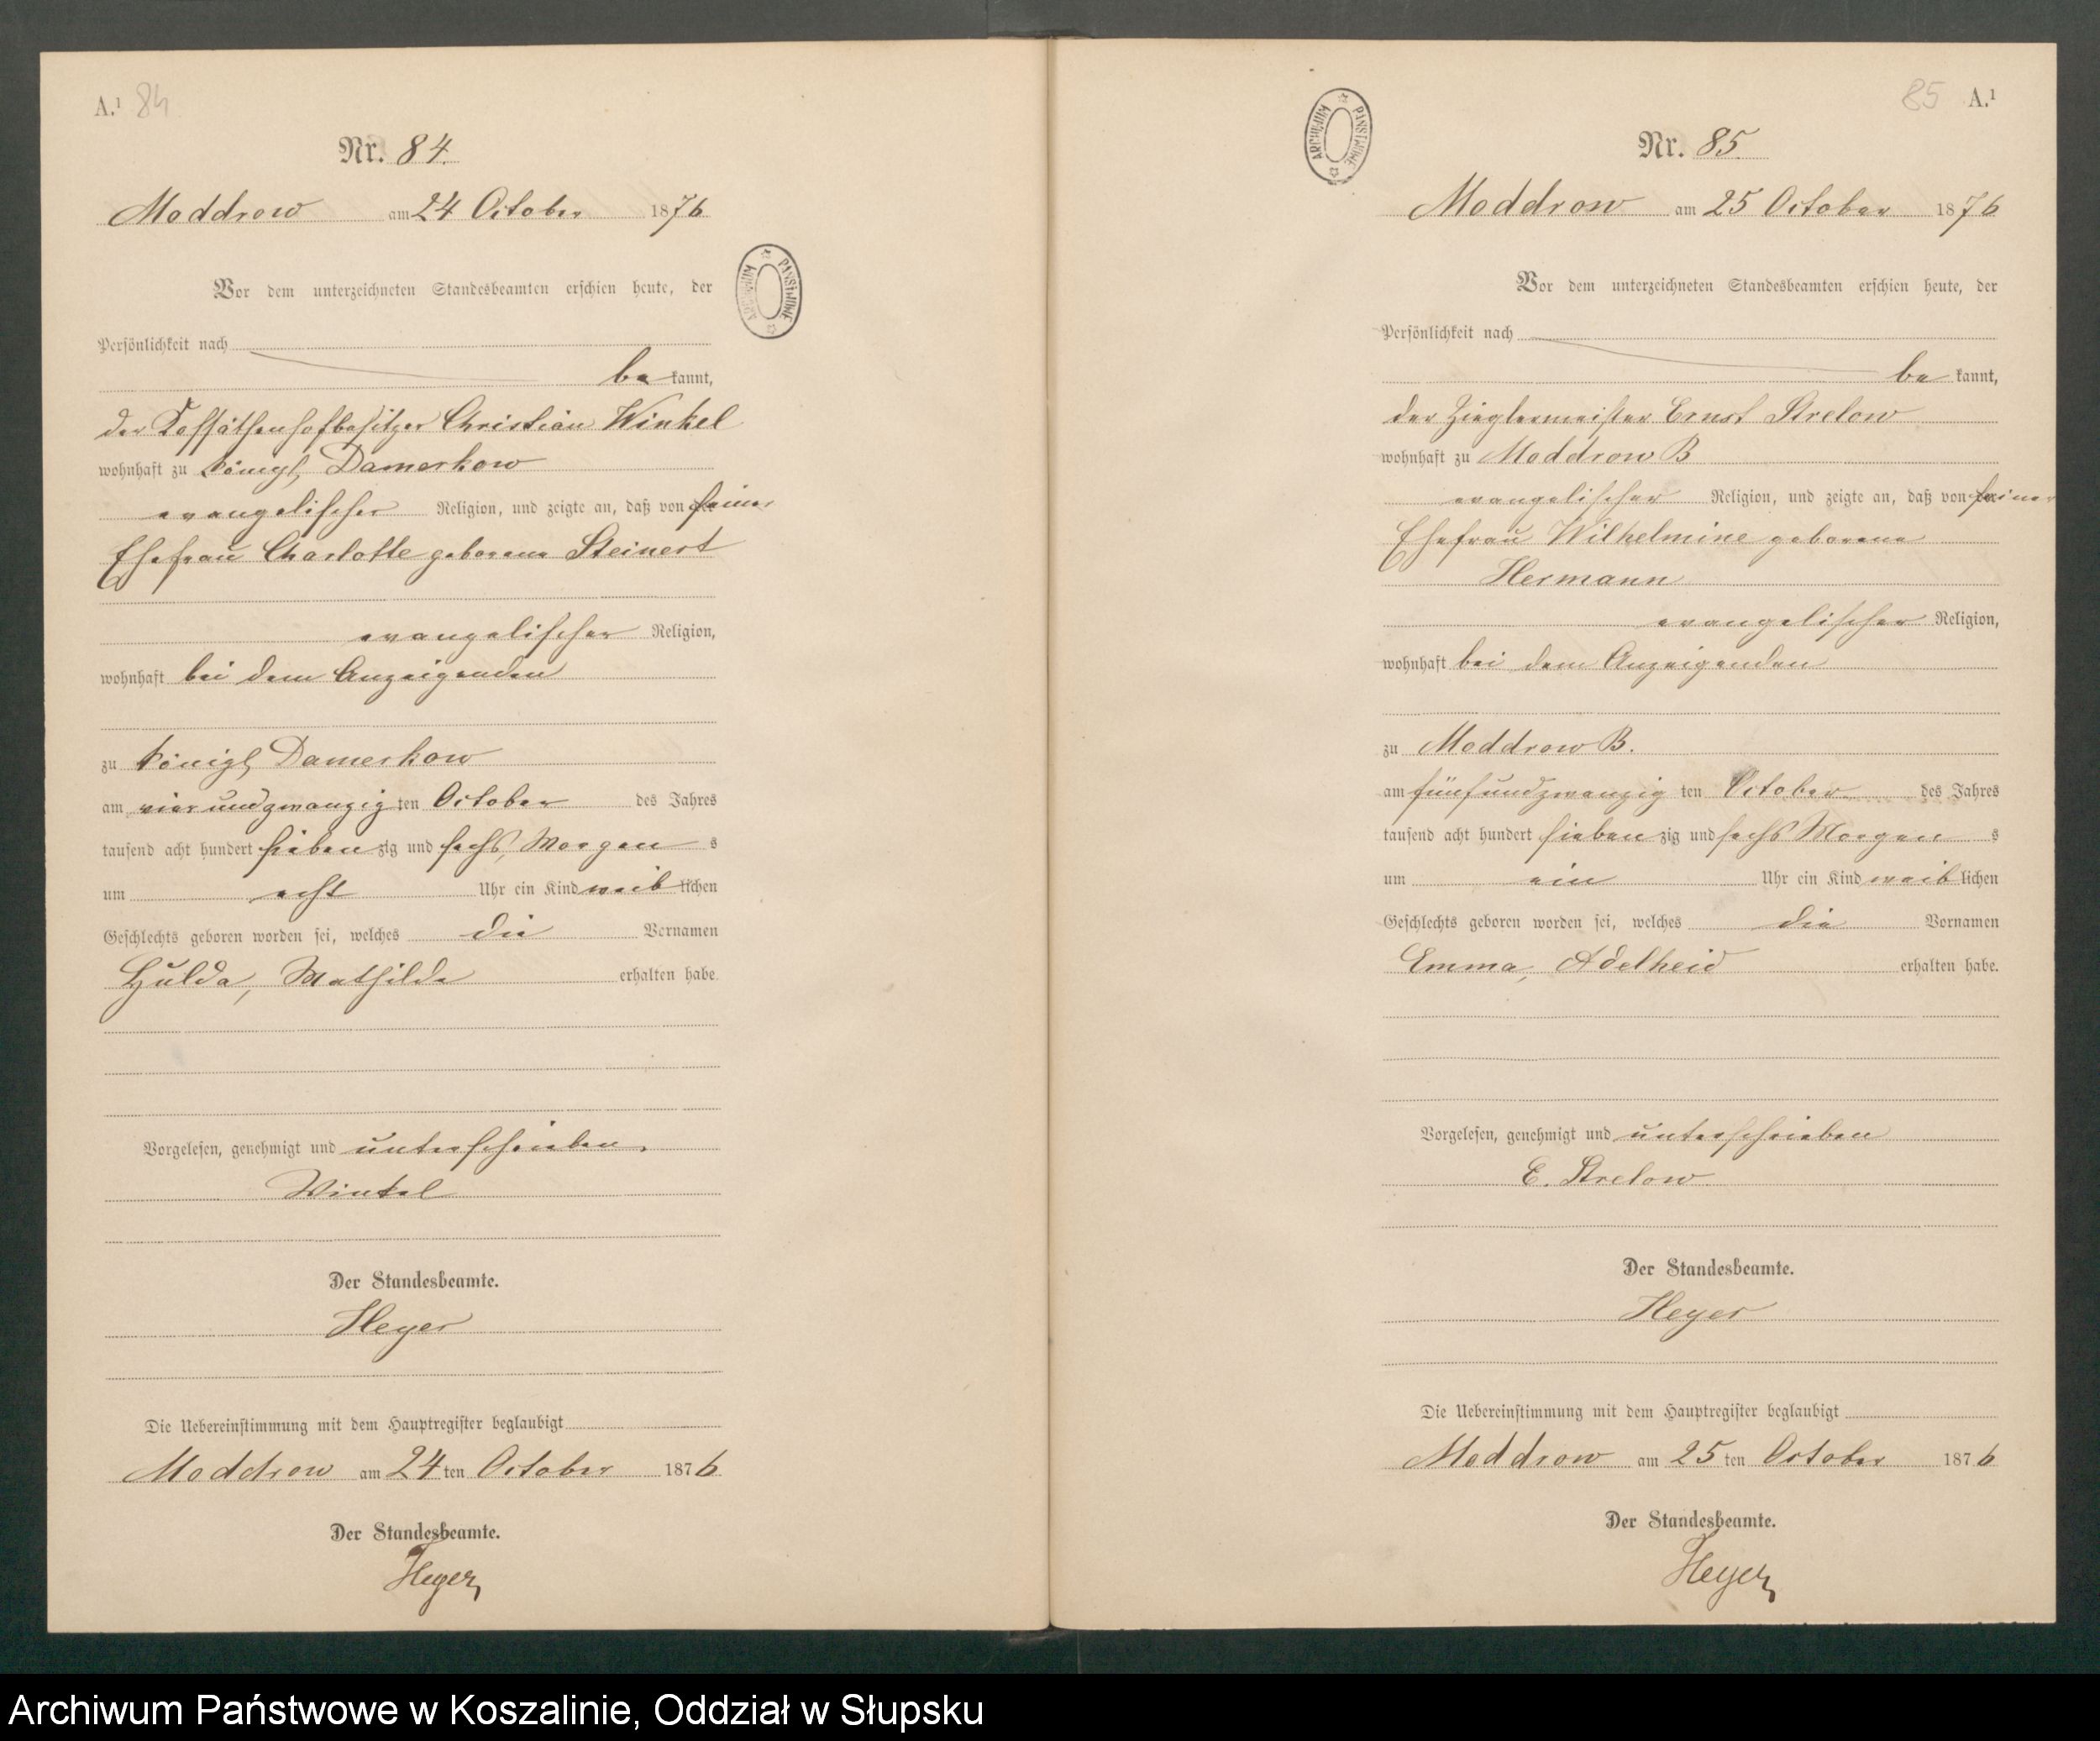 A.¹ 84
Nr. 84.
Moddrow am 24 October 1876
Vor dem unterzeichneten Standesbeamten erschien heute, der
Persönlichkeit nach
be kannt,
der Kossäthenhofbesitzer Christian Winkel
wohnhaft zu Königl, Damerkow
evangelischer Religion, und zeigte an, daß von seiner
Ehefrau Charlotte geborene Steinert
evangelischer Religion,
wohnhaft bei dem Anzeigenden
zu Königl, Damerkow
am vierundzwanzig ten October des Jahres
tausend acht hundert sieben zig und sechs, Morgen s
um acht Uhr ein Kind weib lichen
Geschlechts geboren worden sei, welches die Vornamen
Hulda, Mathilde erhalten habe.
Vorgelesen, genehmigt und unterschrieben.
Winkel
Der Standesbeamte.
Heyer
Die Uebereinstimmung mit dem Hauptregister beglaubigt
Moddrow am 24 ten October 1876.
Der Standesbeamte.
Heyer
ARCHIWUM PAŃSTWOWE
85 A.¹
Nr. 85.
Moddrow am 25 October 1876
Vor dem unterzeichneten Standesbeamten erschien heute, der
Persönlichkeit nach
be kannt,
der Zieglermeister Ernst Strelow
wohnhaft zu Moddrow B
evangelischer Religion, und zeigte an, daß von seiner
Ehefrau Wilhelmine geborene
Hermann
evangelischer Religion,
wohnhaft bei dem Anzeigenden
zu Moddrow B.
am fünfundzwanzig ten October des Jahres
tausend acht hundert sieben zig und sechs Morgen s
um ein Uhr ein Kind weib lichen
Geschlechts geboren worden sei, welches die Vornamen
Emma, Adelheid erhalten habe.
Vorgelesen, genehmigt und unterschrieben
E. Strelow
Der Standesbeamte.
Heyer
Die Uebereinstimmung mit dem Hauptregister beglaubigt
Moddrow am 25 ten October 1876
Der Standesbeamte.
Heyer
ARCHIWUM PAŃSTWOWE
Archiwum Państwowe w Koszalinie, Oddział w Słupsku